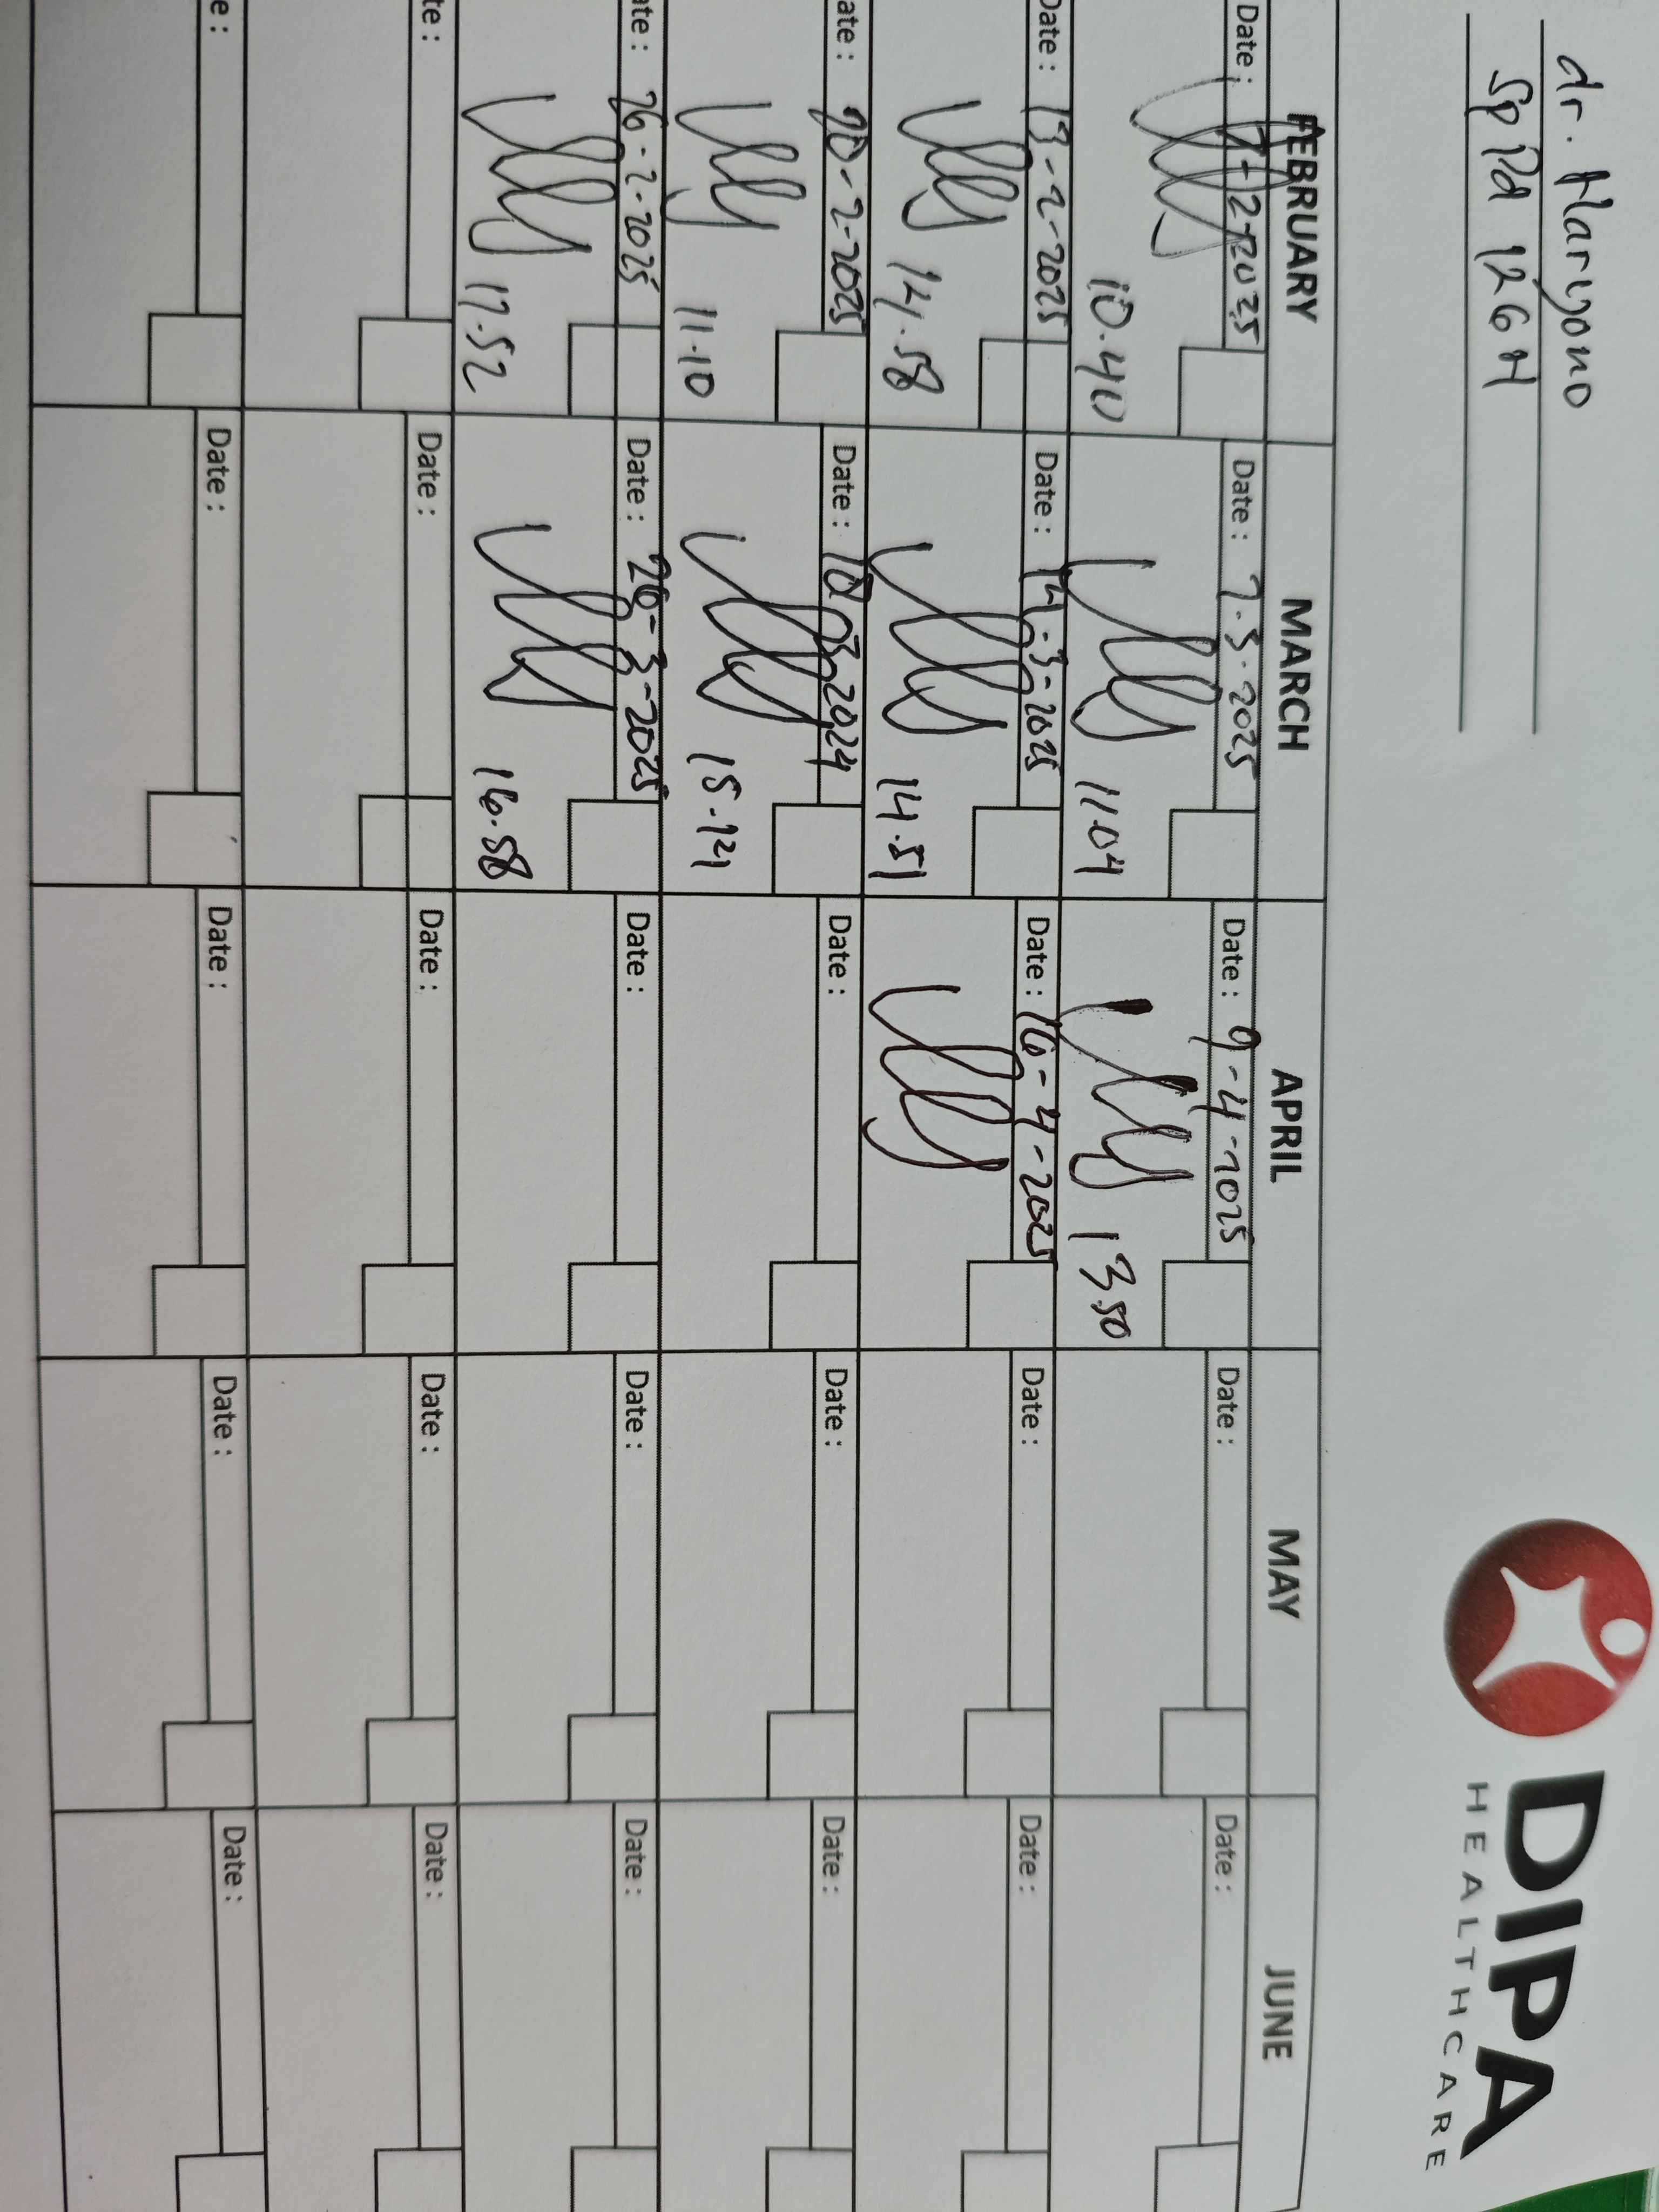 dr. Haryono
Sp Pd
DIPA
HEALTHCARE
FEBRUARY MARCH APRIL MAY JUNE
Date : 7-2-2025 Date : 7.3.2025 Date : 9-4-2025 Date : Date :
10.40 11.04 13.50
Date : 13-2-2025 Date : 14.3-2025 Date : 16-4-2025 Date : Date :
14.58 14.51
ate : 20-2-2025 Date : 18-03-2024 Date : Date : Date :
11.10
ate : 26-2-2025 Date : 26-3-2025 Date : Date : Date :
17.52 16.58
te : Date : Date : Date : Date :
e : Date : Date : Date : Date :